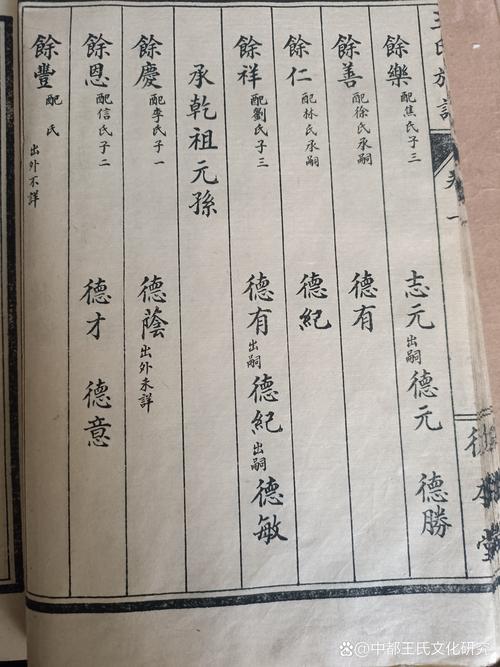 王氏族譜 卷一
餘樂 配焦氏子三 志元 出嗣 德元 德勝
餘善 配徐氏承嗣 德有
餘仁 配林氏承嗣 德紀
餘祥 配劉氏子三 德有 出嗣 德紀 出嗣 德敏
承乾祖元孫
餘慶 配李氏子一 德蔭 出外未詳
餘恩 配信氏子二 德才 德意
餘豐 配 氏 出外不詳
中都王氏文化研究